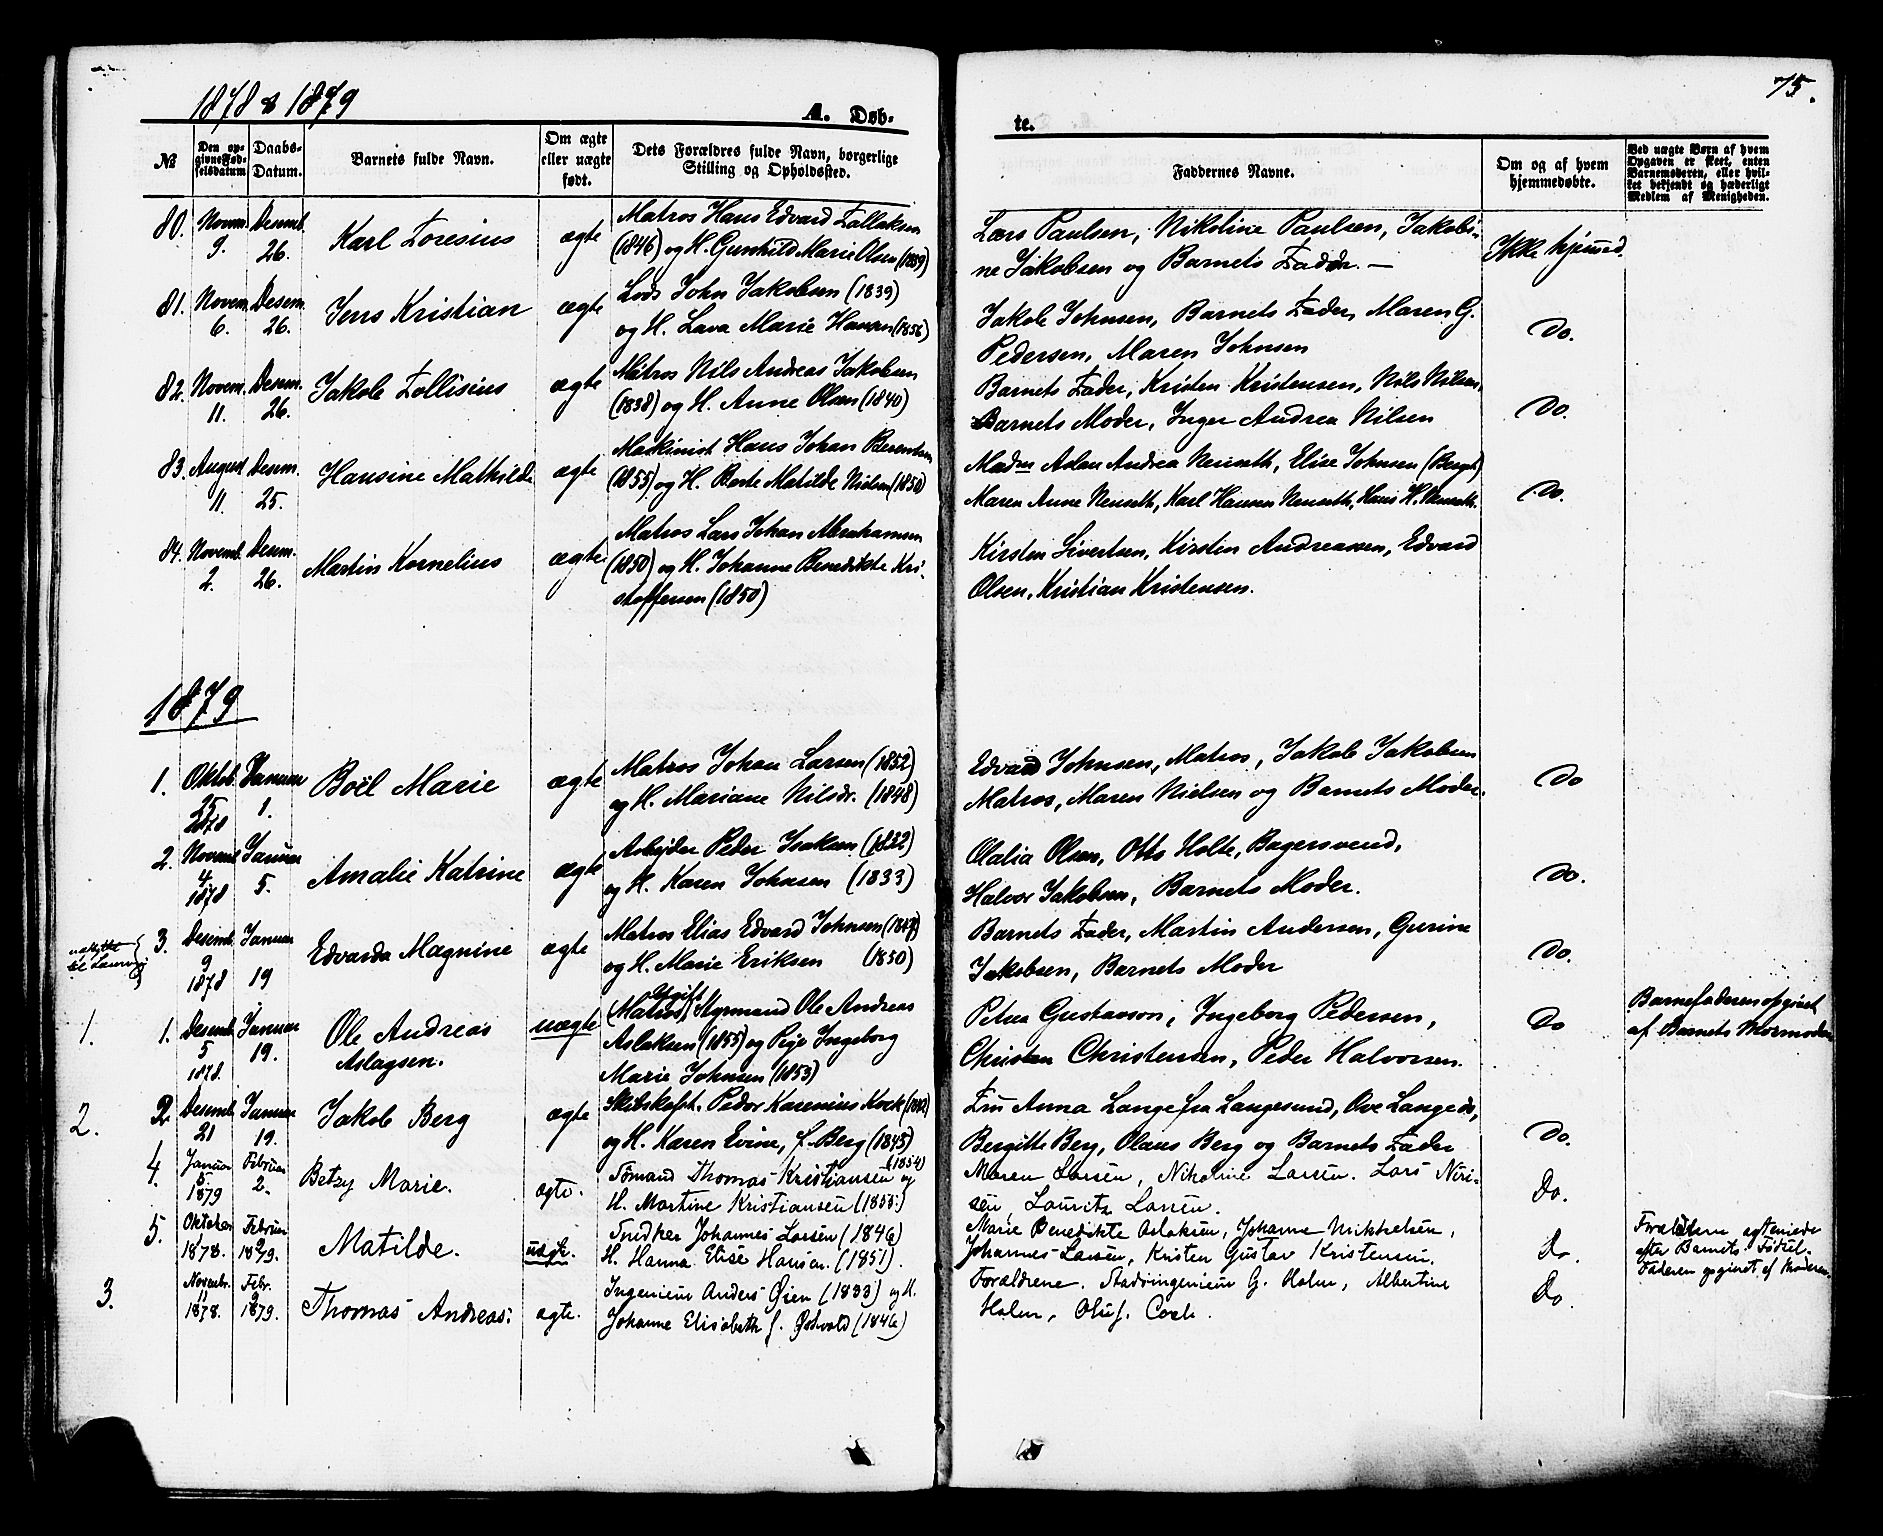 1878 & 1879
A. Døb-
te.
75.
№
Den op-
givne Fød-
selsdatum
Daabs-
Datum.
Barnets fulde Navn.
Om ægte
eller uægte
født.
Dets Forældres fulde Navn, borgerlige
Stilling og Opholdssted.
Faddernes Navne.
Om og af hvem
hjemmedøbte.
Ved uægte Børn af hvem
Opgaven er skeet, enten
Barnemoderen, eller hvil-
ket bekjendt og hæderligt
Medlem af Menigheden.
80. Novem. 9. Desemb. 26. Karl Toresius ægte
Matros Hans Edvard Tollaksen
(1846) og H. Gunhild Marie Olsen (1839)
Lars Paulsen, Nikoline Paulsen, Jakobi-
ne Jakobsen og Barnets Fader. —
Ikke hjemmed.
81. Novem. 6. Desem. 26. Jens Kristian ægte
Lods John Jakobsen (1839)
og H. Lava Marie Hansen (1856)
Jakob Johnsen, Barnets Fader, Maren G.
Pedersen, Maren Johnsen
Do.
82. Novem. 11. Desem. 26. Jakob Tollisius ægte
Matros Nils Andreas Jakobsen
(1838) og H. Anne Olsen (1840)
Barnets Fader, Kristen Kristensen, Nils Nilsen,
Barnets Moder, Inger Andrea Nilsen
Do.
83. August 11. Desem. 25. Hansine Mathilde ægte
Maskinist Hans Johan Berentsen
(1855) og H. Berte Matilde Nielsen (1850)
Andrea Nenseth, Elise Johnsen (Bergh)
Maren Anne Nenseth, Karl Hansen Nenseth, Hans H. Nenseth.
Do.
84. Novemb. 2. Desem. 26. Martin Kornelius ægte
Matros Lars Johan Abrahamsen
(1850) og H. Johanne Benedikte Kri-
stoffersen (1850)
Kirsten Sivertsen, Kirstin Andreassen, Edvard
Olsen, Kristian Kristensen.
1879
1. Oktob. 25 1878 Januar 1. Boël Marie ægte
Matros Johan Larsen (1852)
og H. Mariane Nilsdr. (1848)
Edvard Johnsen, Matros, Jakob Jakobsen
Matros, Maren Nielsen og Barnets Moder.
Do
2. Novemb. 4 1878 Januar 5. Amalie Katrine ægte
Arbejder Peder Isaksen (1832)
og H. Karen Johnsen (1833)
Olalia Olsen, Otto Holte, Bagersvend,
Halvor Jakobsen, Barnets Moder.
Do.
til Laurvig
3. Desemb. 9 1878 Januar 19 Edvarda Magnine ægte
Matros Elias Edvard Johnsen (1847)
og H. Marie Eriksen (1850)
Barnets Fader, Martin Andersen, Gurine
Jakobsen, Barnets Moder
Do.
1. 1. Desemb. 5 1878. Januar 19. Ole Andreas
Aslagsen. uægte
Ugift
(Matros) Styrmand Ole Andreas
Aslaksen (1855) og Pige Ingeborg
Marie Johnsen (1853)
Petrea Gustavson, Ingeborg Pedersen,
Christen Christensen, Peder Halvorsen.
Do
Barnefaderen opgivet
af Barnets Mormoder
2. 2. Desemb. 21 Januar 19. Jakob Berg ægte
Skibskapt. Peder Karenius Kock (1842)
og H. Karen Evine, f. Berg (1845)
Fru Anna Lange fra Langesund, Ove Lange do,
Bergitte Berg, Olaus Berg og Barnets Fader
Do.
4. Januar 5. 1879 Februar 2. Betzy Marie. ægte.
Tømand Thomas Kristiansen (1854) og
H. Martine Kristiansen (1855.)
Maren Larsen, Nikoline Larsen. Lars Niri-
sen, Lauritz Larsen.
Do.
5. Oktober 1878. Februar 2 1879. Matilde. uægte.
Snedker Johannes Larsen (1846)
H. Hanna Elise Hansen. (1851).
Marie Benedikte Aslaksen, Johanne Mikkelsen,
Johannes Larsen, Kristen Gustav Kristensen.
Do
Forældrene ægteviede
efter Barnets Fødsel.
Faderen opgivet af Moderen.
3. Novembr. 11 1878. Febr. 9 1879. Thomas Andreas. ægte.
Ingeniør Anders Øien (1833) og H.
Johanne Elisabeth f. Østvold (1846)
Forældrene. Stadsingeniør G. Holm, Albertine
Holm, Oluf.
Do.